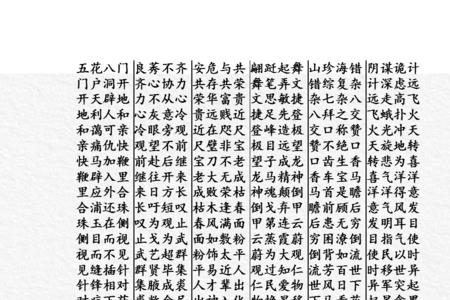 五花八门 良莠不齐 安危与共 翩跹起舞 山珍海错 阴谋诡计
门户洞开 齐心协力 共存共荣 舞笔弄文 错综复杂 计深虑远
开天辟地 力不从心 荣华富贵 文思敏捷 杂七杂八 远走高飞
地利人和 心灰意冷 贵远贱近 捷足先登 八拜之交 飞蛾扑火
和蔼可亲 冷眼旁观 近在咫尺 登峰造极 交口称赞 火光冲天
亲痛仇快 观望不前 尺璧非宝 极目远望 赞不绝口 天旋地转
快马加鞭 前赴后继 宝刀不老 望子成龙 口齿生香 转悲为喜
鞭辟入里 继往开来 老大无成 龙马精神 香车宝马 喜气洋洋
里应外合 来日方长 成败荣枯 神魂颠倒 马首是瞻 洋洋得意
合浦还珠 长吁短叹 枯木逢春 倒戈弃甲 瞻前顾后 意气风发
珠玉在侧 叹为观止 春风满面 甲第连云 后患无穷 发明耳目
侧目而视 止戈为武 面如敷粉 云蒸霞蔚 穷困潦倒 目指气使
视而不见 武艺超群 粉饰太平 蔚为大观
见缝插针 群贤毕集 平易近人 观过知仁 流芳百世 异军突起
针锋相对